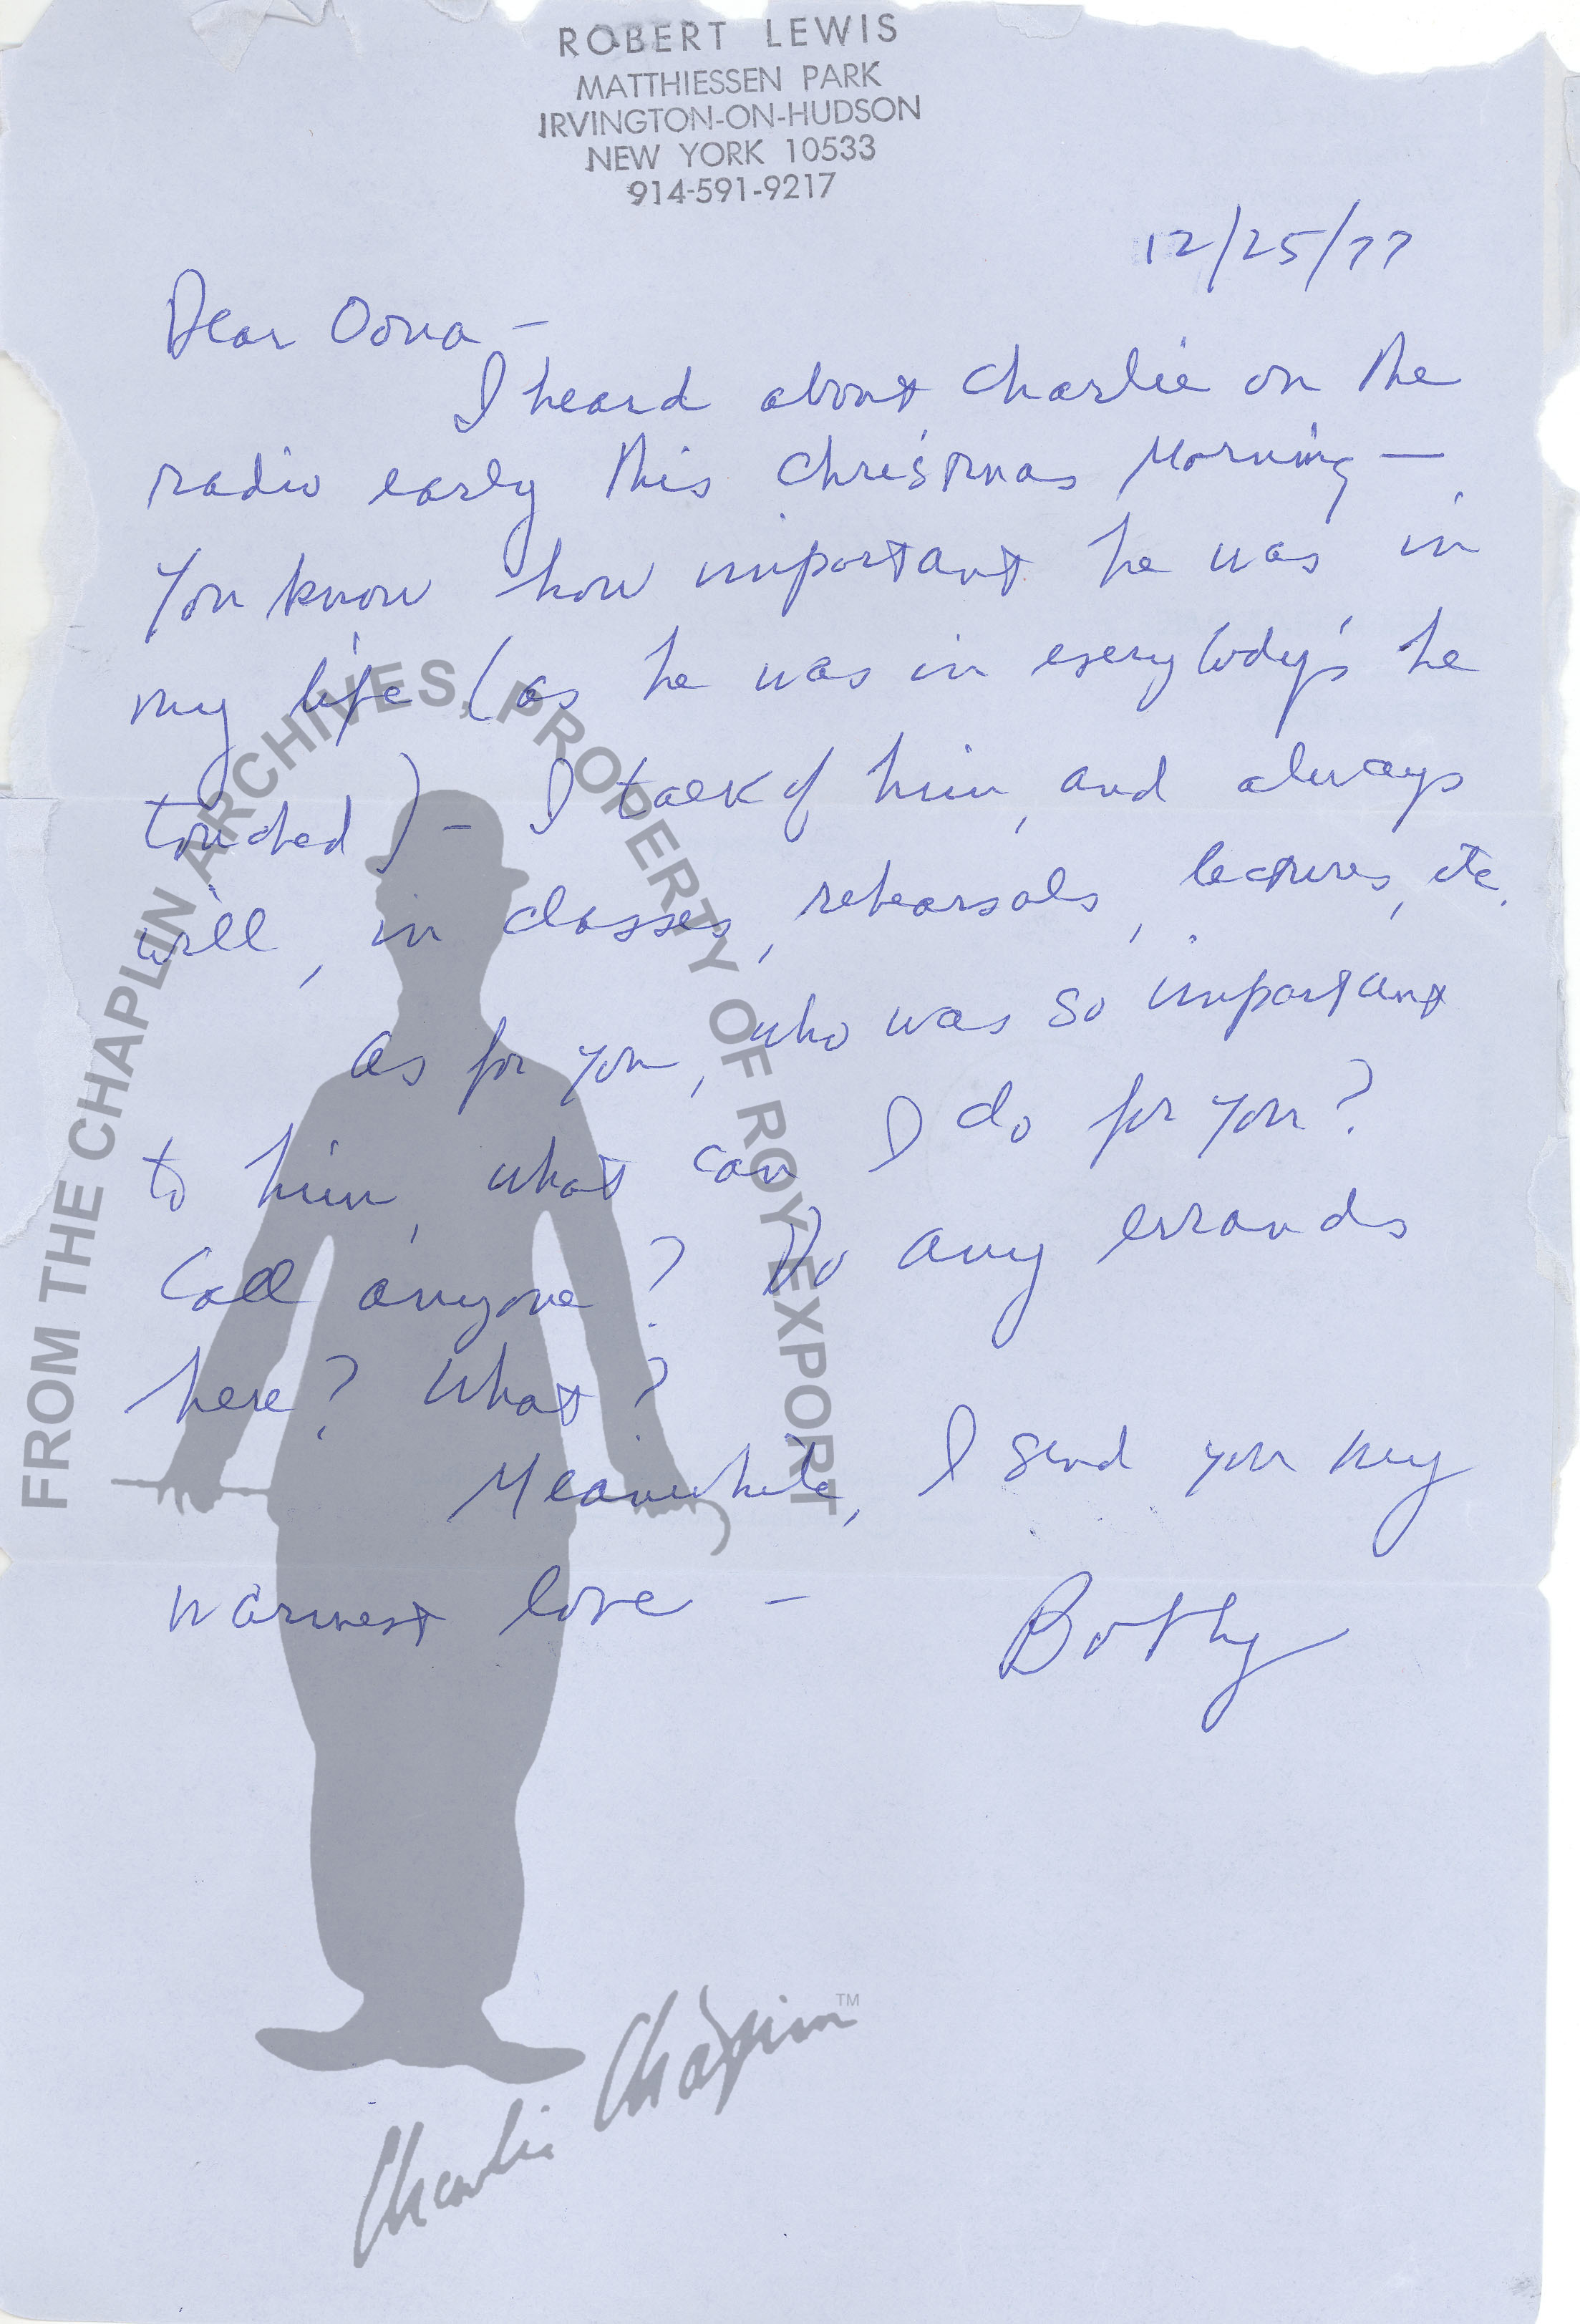 ROBERT LEWIS
MATTHIESSEN PARK
IRVINGTON-ON-HUDSON
NEW YORK 10533
914-591-9217
12/25/77
Dear Oona –
I heard about Charlie on the
radio early this Christmas Morning —
You know how important he was in
my life (as he was in everybody's he
touched) – I talk of him, and always
will, in classes, rehearsals, lectures, etc.
As for you, who was so important
to him, what can I do for you?
Call anyone? Do any errands
here? What?
Meanwhile, I send you my
warmest love –
Bobby
FROM THE CHAPLIN ARCHIVES, PROPERTY OF ROY EXPORT
Charlie Chaplin TM